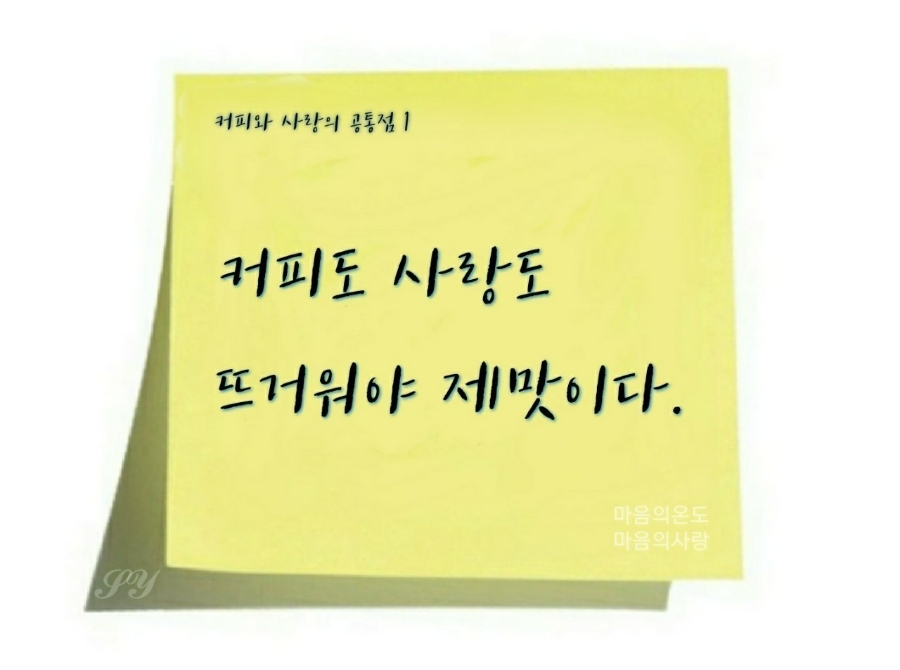 커피와 사랑의 공통점 1
커피도 사랑도
뜨거워야 제맛이다.
마음의온도
마음의사랑
SY